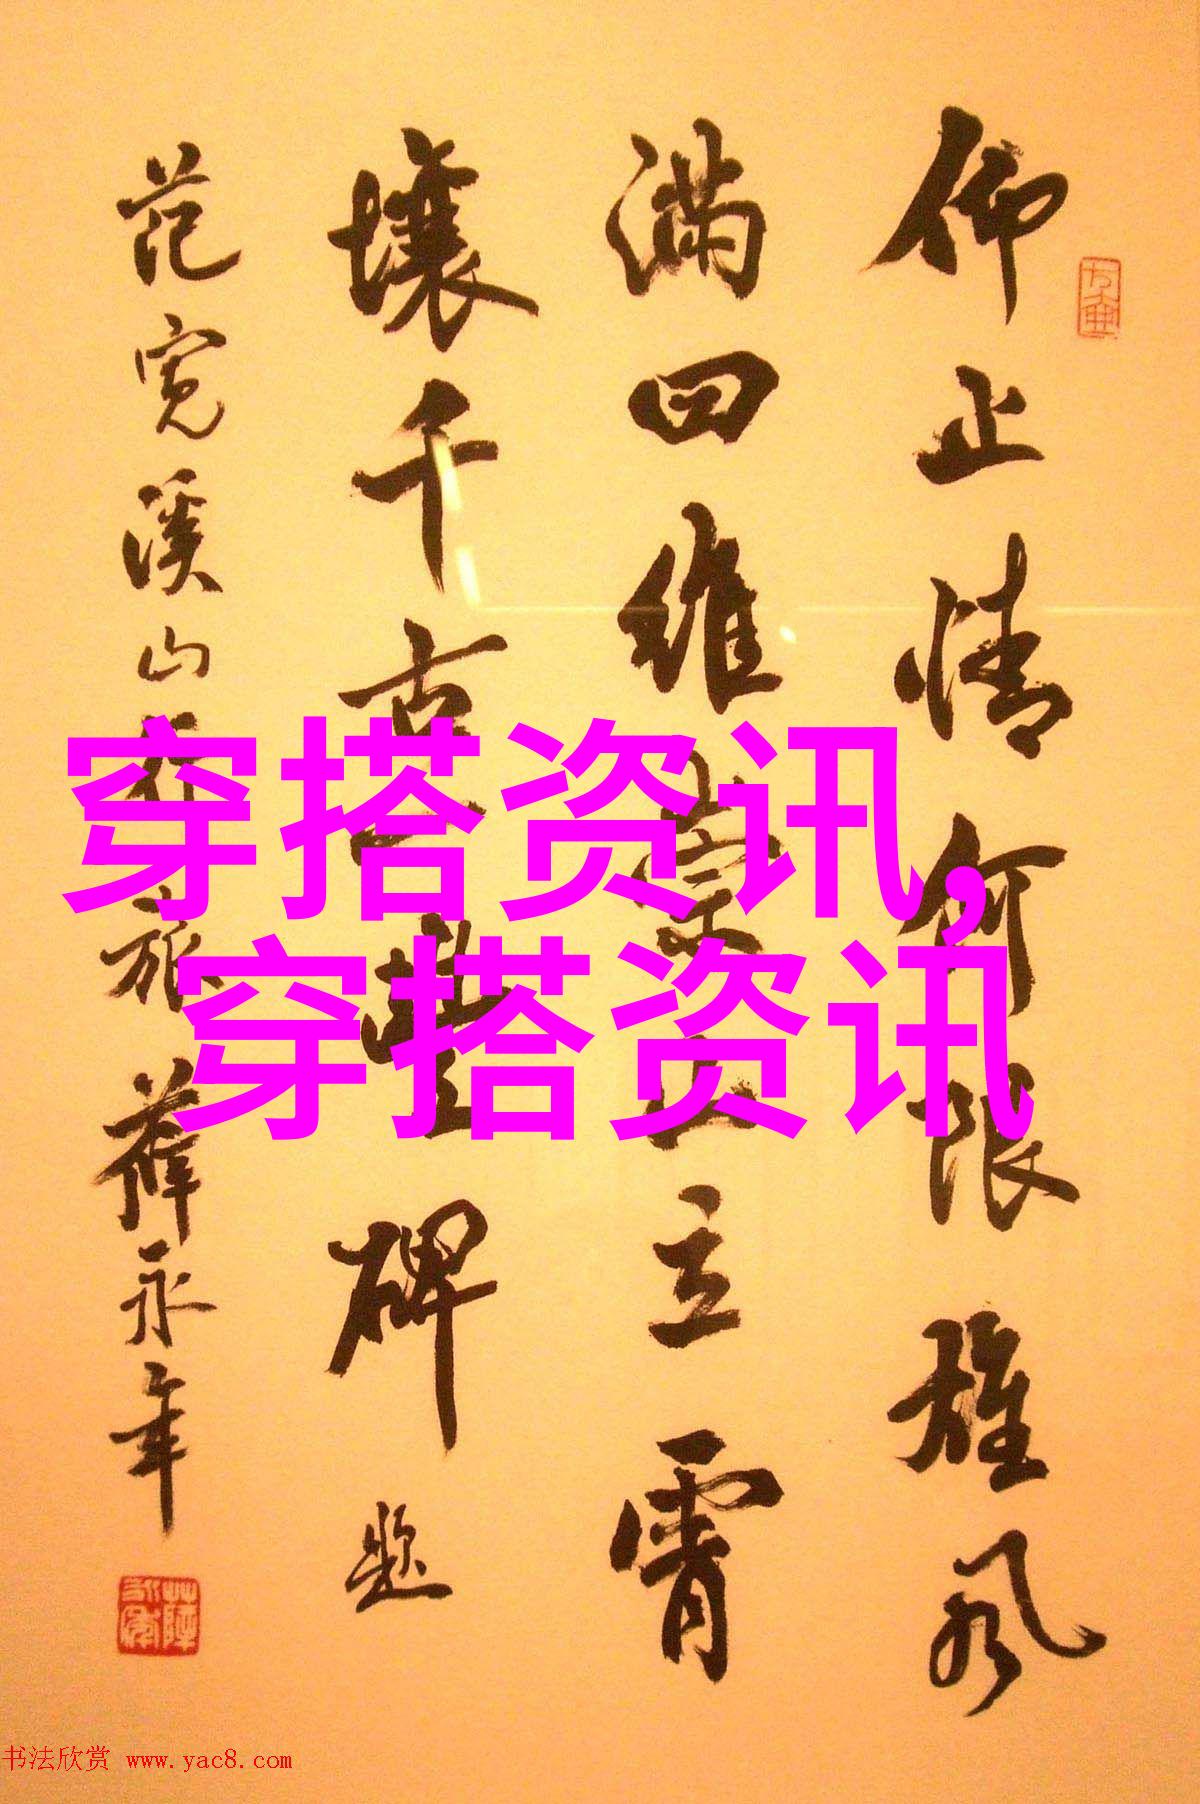 仰止情何限雄风
满四维崇山立霄
壤千古豐碑题
范宽溪山行旅 薛永年
穿搭资讯,
穿搭资讯
书法欣赏 www.yac8.com